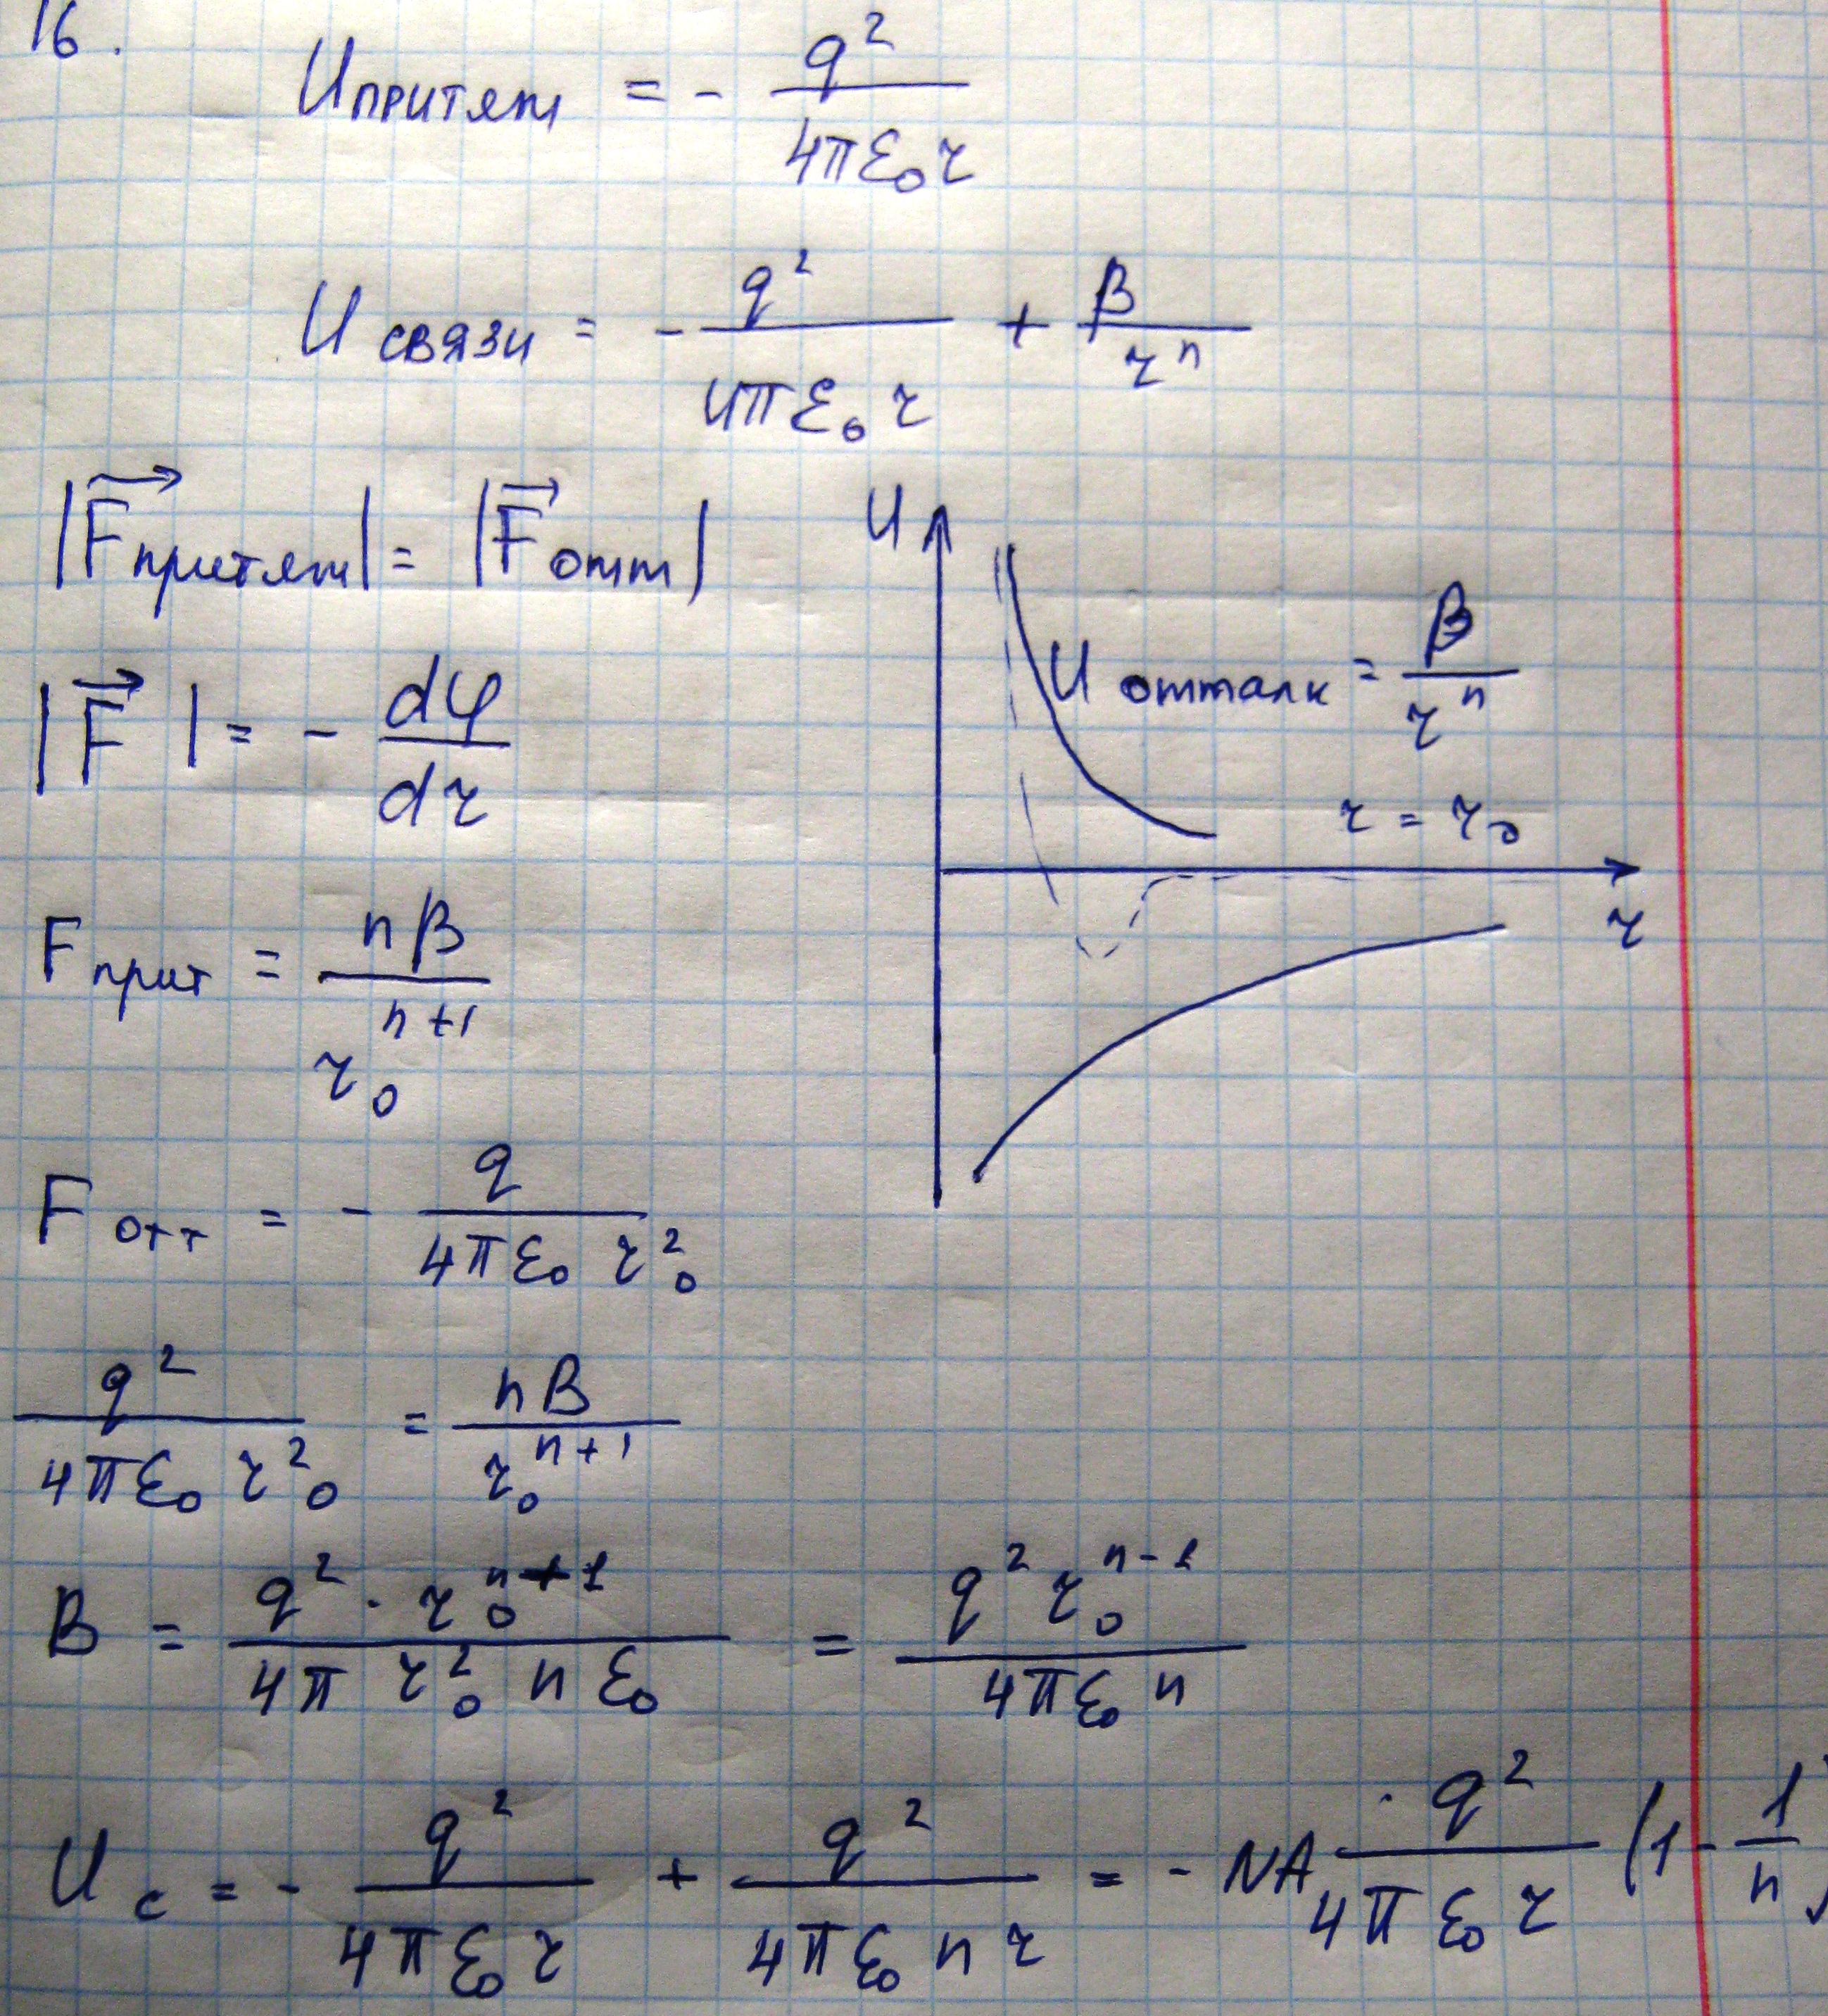 16.
U притяж = - q² / 4πε₀r
U связи = - q² / 4πε₀r + β / rⁿ
|F⃗ притяж| = |F⃗ отт|
U
U отталк = β / rⁿ
|F⃗| = - dφ / dr
r = r₀
r
F прит = nβ / r₀ⁿ⁺¹
F отт = - q / 4πε₀ r₀²
q² / 4πε₀ r₀² = nB / r₀ⁿ⁺¹
B = q² · r₀ⁿ⁺¹ / 4π r₀² n ε₀ = q² r₀ⁿ⁻¹ / 4πε₀ n
U с = - q² / 4πε₀ r + q² / 4πε₀ n r = - NA · q² / 4πε₀ r (1 - 1/n)